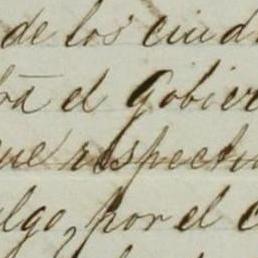 de los ciuda
el Gobier
que respectiv
algo, por el